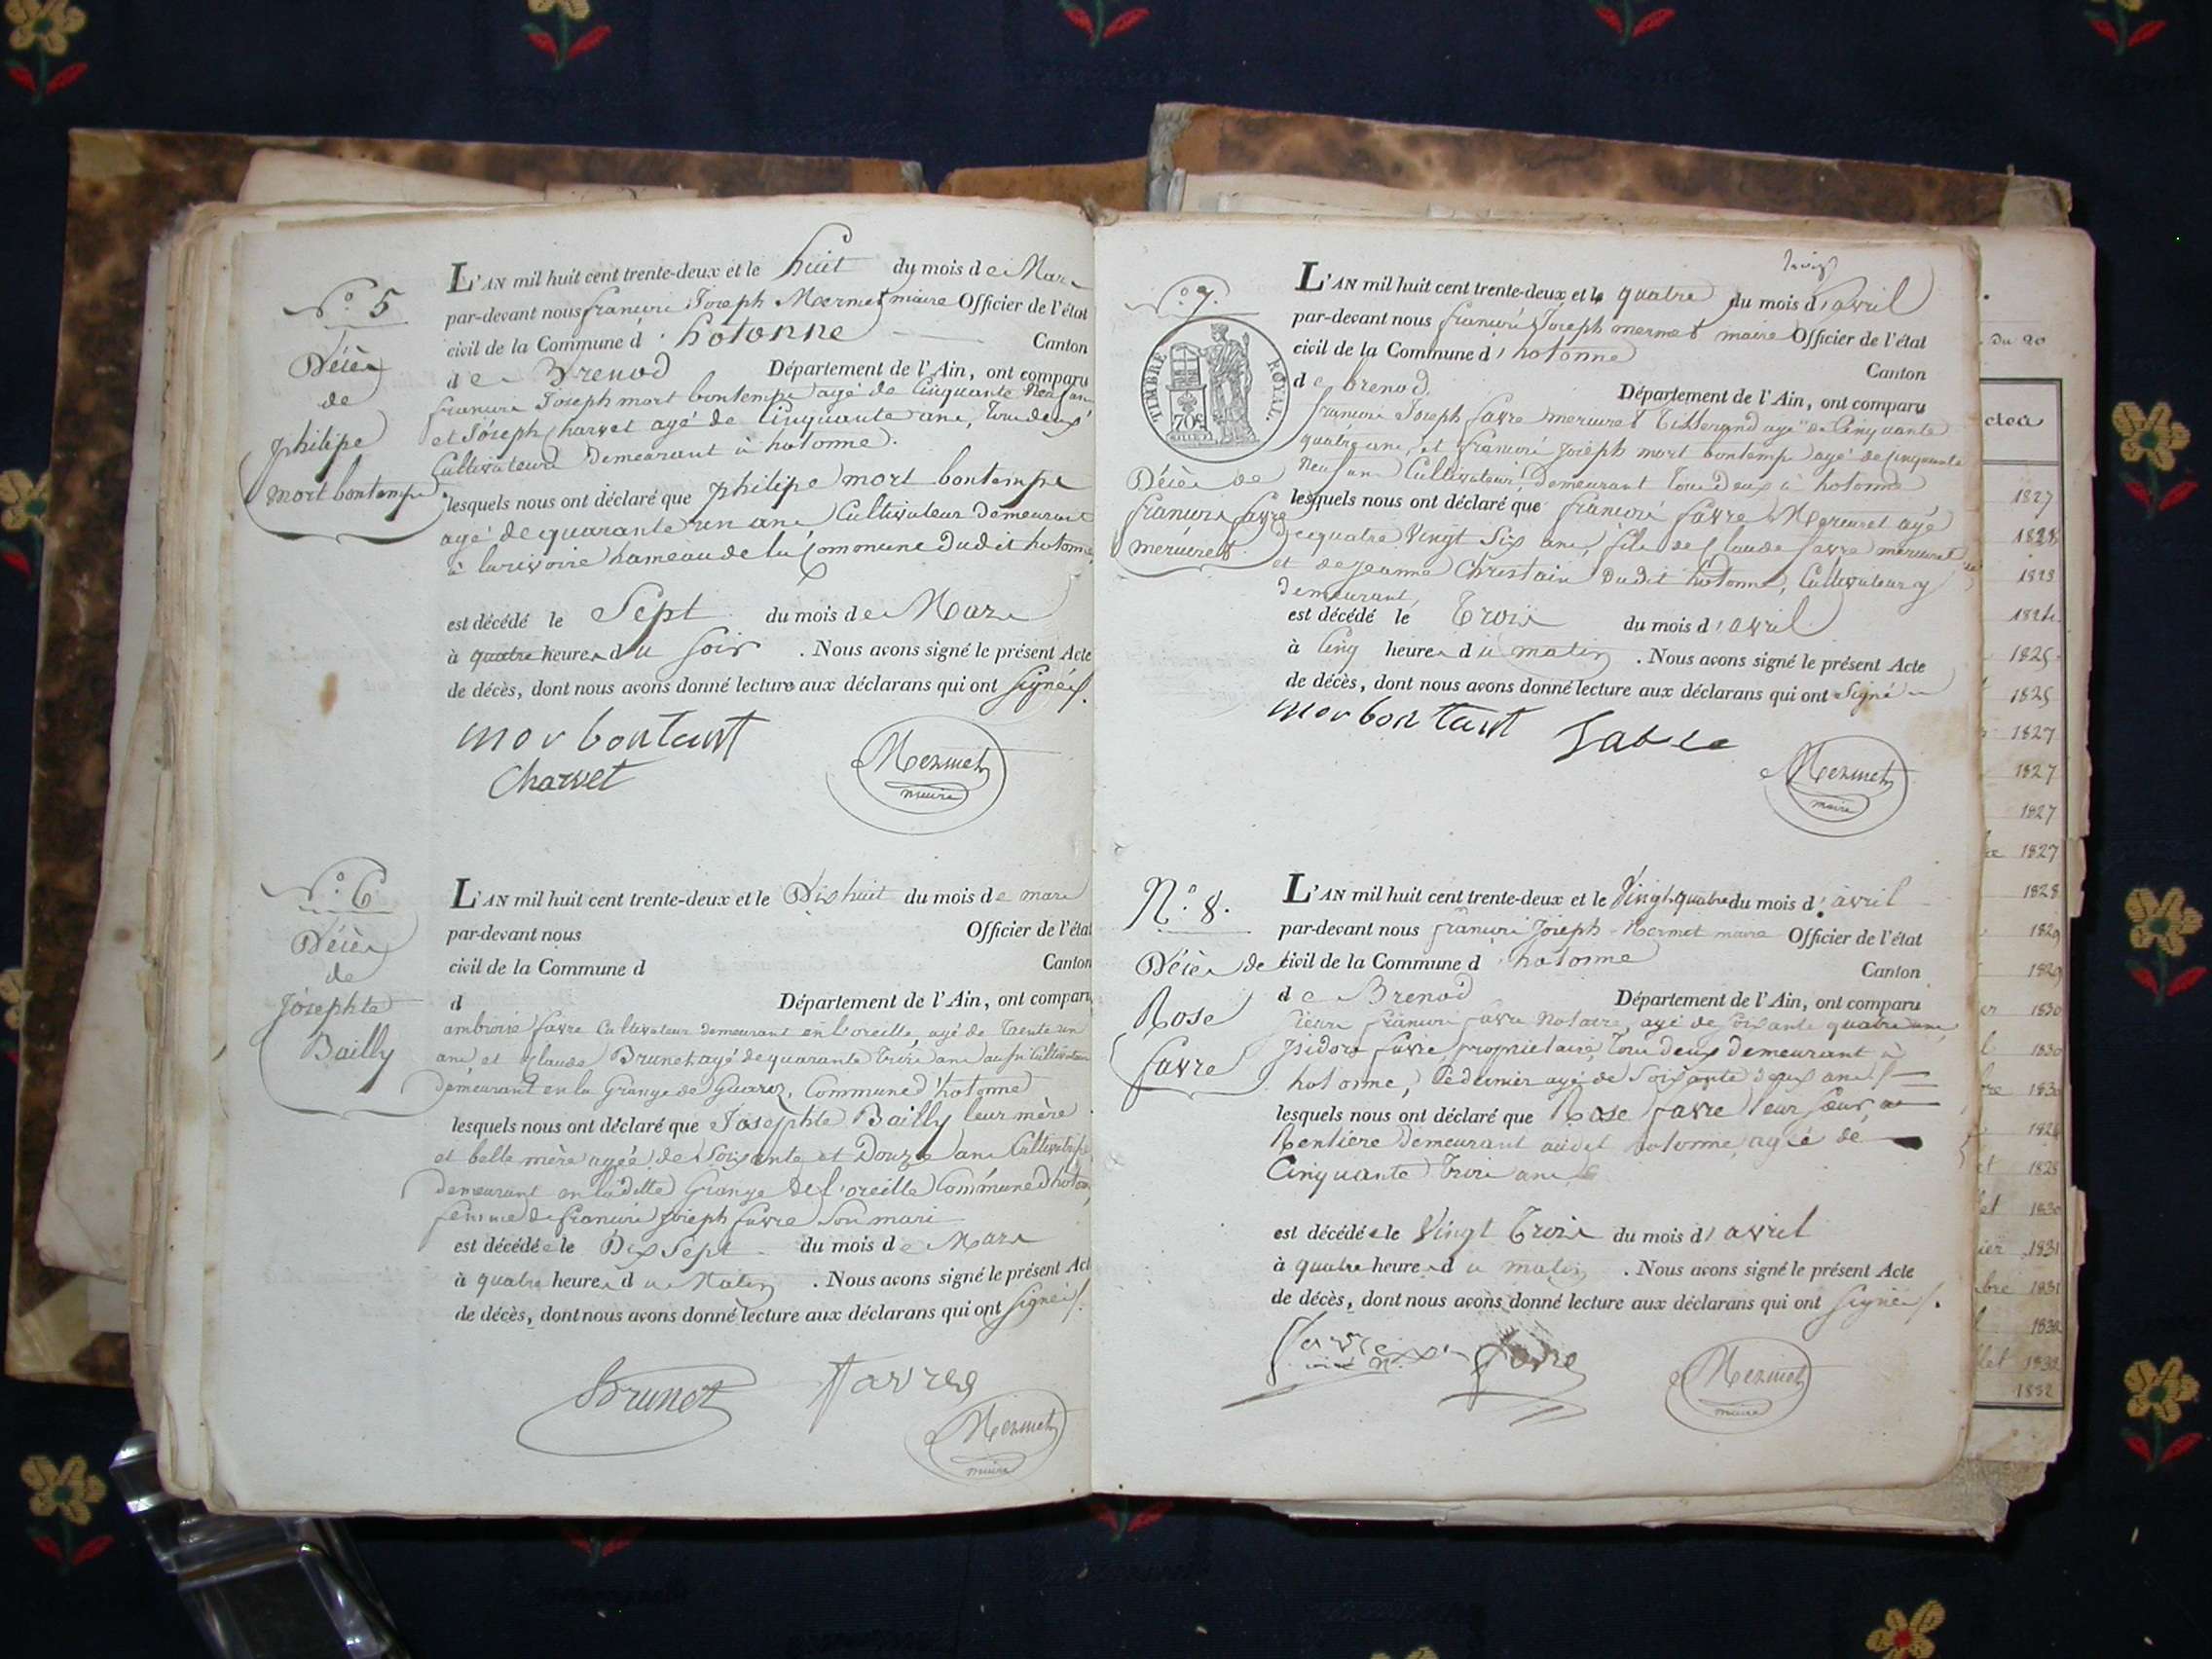 N.o 5
Décès
de
philipe
mort bontemps
L'AN mil huit cent trente-deux et le huit du mois de Mars
par-devant nous françois Joseph Mermet maire Officier de l'état
civil de la Commune d'hotonne Canton
de Brenod Département de l'Ain, ont comparu
françois Joseph mort bontemps agé de Cinquante Neuf ans
et Joseph Charvet agé de Cinquante ans, Tous deux
Cultivateurs Demeurant à hotonne.
lesquels nous ont déclaré que philipe mort bontemps
agé de quarante un ans Cultivateur Demeurant
à larivoire hameau de la Commune Dudit hotonne
est décédé le Sept du mois de Mars
à quatre heures du Soir . Nous avons signé le présent Acte
de décès, dont nous avons donné lecture aux déclarans qui ont Signés.
morbontant
Charvet
Mermet
maire
N.o 6
Décès
de
Josephte
Bailly
L'AN mil huit cent trente-deux et le Dix huit du mois de mars
par-devant nous Officier de l'état
civil de la Commune d Canton
d Département de l'Ain, ont comparu
ambroise favre Cultivateur demeurant en l'oreille, agé de Trente un
ans et Claude Brunet agé de quarante Trois ans aussi Cultivateur
demeurant en la Grange de Commune d'hotonne
lesquels nous ont déclaré que Josephte Bailly leur mère
et belle mère agée de Soixante et Douze ans Cultivatrice
demeurant en laditte Grange de l'oreille Commune d'hotonne
femme de françois Joseph favre Son mari
est décédée le Dix Sept du mois de Mars
à quatre heures du Matin . Nous avons signé le présent Acte
de décès, dont nous avons donné lecture aux déclarans qui ont Signés.
Brunet favre
Mermet
maire
N.o 7.
TIMBRE ROYAL.
70c
Décès de
françois favre
mercuret
L'AN mil huit cent trente-deux et le quatre du mois d'avril
par-devant nous françois Joseph mermet maire Officier de l'état
civil de la Commune d'hotonne Canton
de brenod Département de l'Ain, ont comparu
françois Joseph favre mercuret Tisserand agé de Cinquante
quatre ans, et françois joseph mort bontemps agé de Cinquante
Neuf ans Cultivateur, Demeurant Tous Deux à hotonne
lesquels nous ont déclaré que françois favre Mercuret agé
de quatre Vingt Six ans, fils de Claude favre mercuret
et de jeanne Christain Dudit hotonne, Cultivateur y
demeurant,
est décédé le Trois du mois d'avril
à Cinq heures du matin . Nous avons signé le présent Acte
de décès, dont nous avons donné lecture aux déclarans qui ont Signé
morbontant
Mermet
maire
N.o 8.
Décès de
Rose
favre
L'AN mil huit cent trente-deux et le Vingt quatre du mois d'avril
par-devant nous françois Joseph Mermet maire Officier de l'état
civil de la Commune d'hotonne Canton
de Brenod Département de l'Ain, ont comparu
Pierre françois favre Notaire, agé de Soixante quatre ans,
Isidore favre, propriétaire, Tous deux demeurant à
hotonne, le dernier agé de Soixante deux ans
lesquels nous ont déclaré que Rose favre leur Sœur,
Rentière demeurant audit hotonne, agée de
Cinquante Trois ans
est décédée le Vingt Trois du mois d'avril
à quatre heures du matin . Nous avons signé le présent Acte
de décès, dont nous avons donné lecture aux déclarans qui ont Signés.
favre
Mermet
maire
Du 20
1827
1828
1825
1825
1827
1827
1827
1827
1828
1829
1829
1830
1830
1830
1828
1830
1831
1831
1832
1832
1832